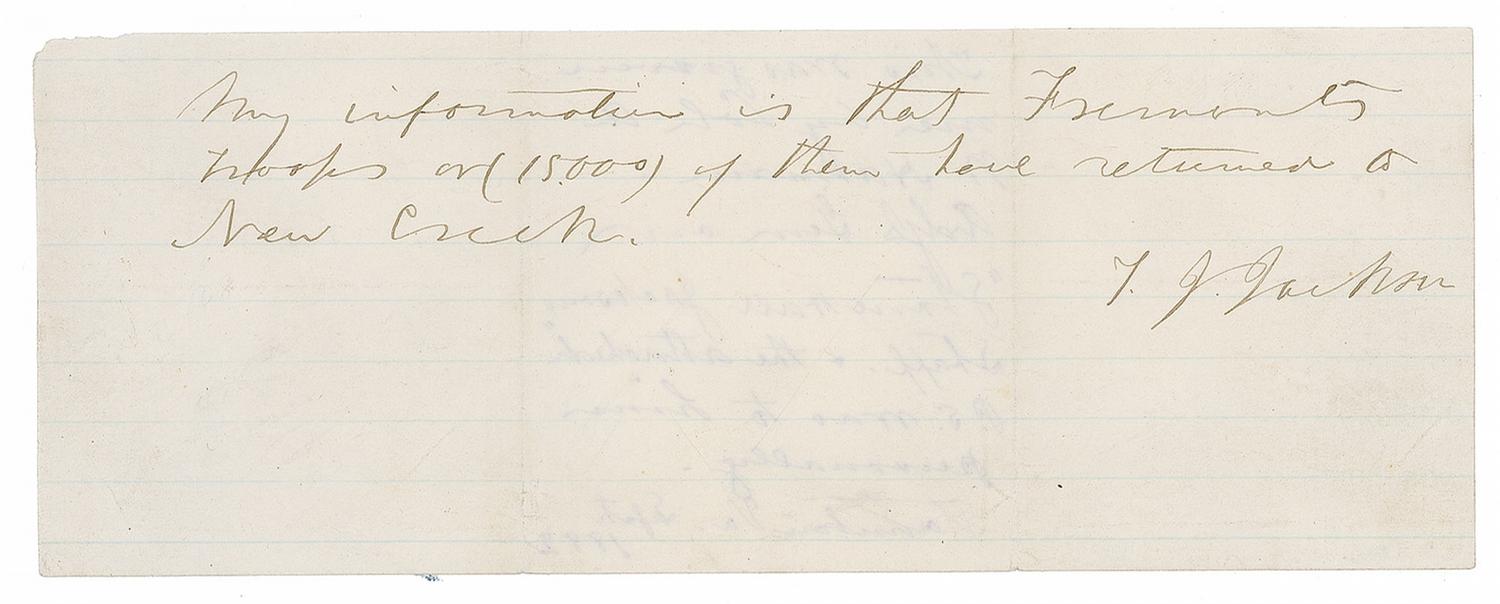 My information is that Fremonts
troops or (15.000) of them have returned to
New Creek.
T. J. Jackson